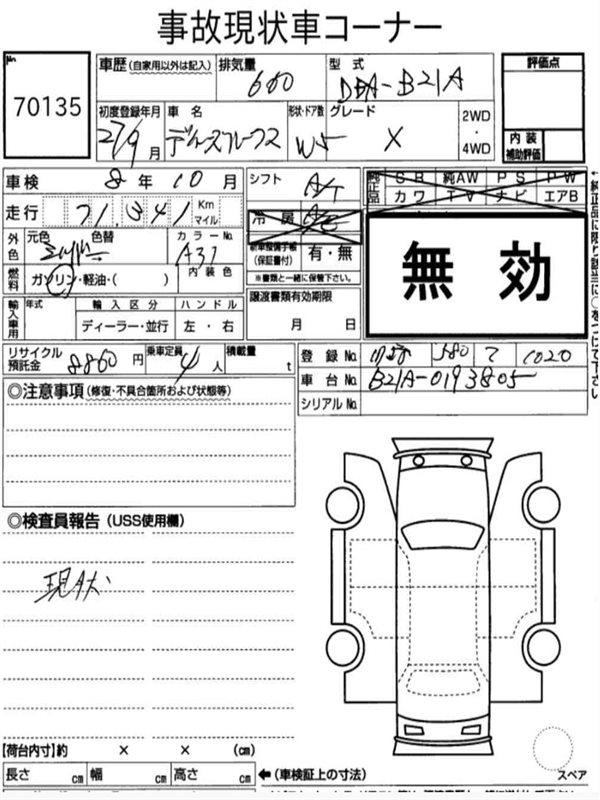 事故現状車コーナー
No. 70135
車歴 (自家用以外は記入) 排気量 660 型式 DBA-B21A 評価点
初度登録年月 27/9月 車名 デイズルークス 形状・ドア数 W5 グレード X 2WD・4WD 内装補助評価
車検 8年10月 シフト AT 純正品 SR 純AW PS PW
カワ TV ナビ エアB
走行 71,341 Km マイル 冷房
外色 元色 色替 カラーNo. A37
新車整備手帳(保証書付) 有・無
※書類と一緒に保管下さい。
燃料 ガソリン・軽油・( ) 内装色
無効
輸入車用 年式 輸入区分 ハンドル
ディーラー・並行 左・右
譲渡書類有効期限
月 日
←純正品に限り該当に○をつけて下さい
リサイクル預託金 8860円 乗車定員 4人 積載量 t
登録No. 580 1020
車台No. B21A-0193805
シリアルNo.
◎注意事項 (修復・不具合箇所および状態等)
◎検査員報告 (USS使用欄)
現状
【荷台内寸】約 × × (cm)
長さ cm 幅 cm 高さ cm ←(車検証上の寸法)
スペア